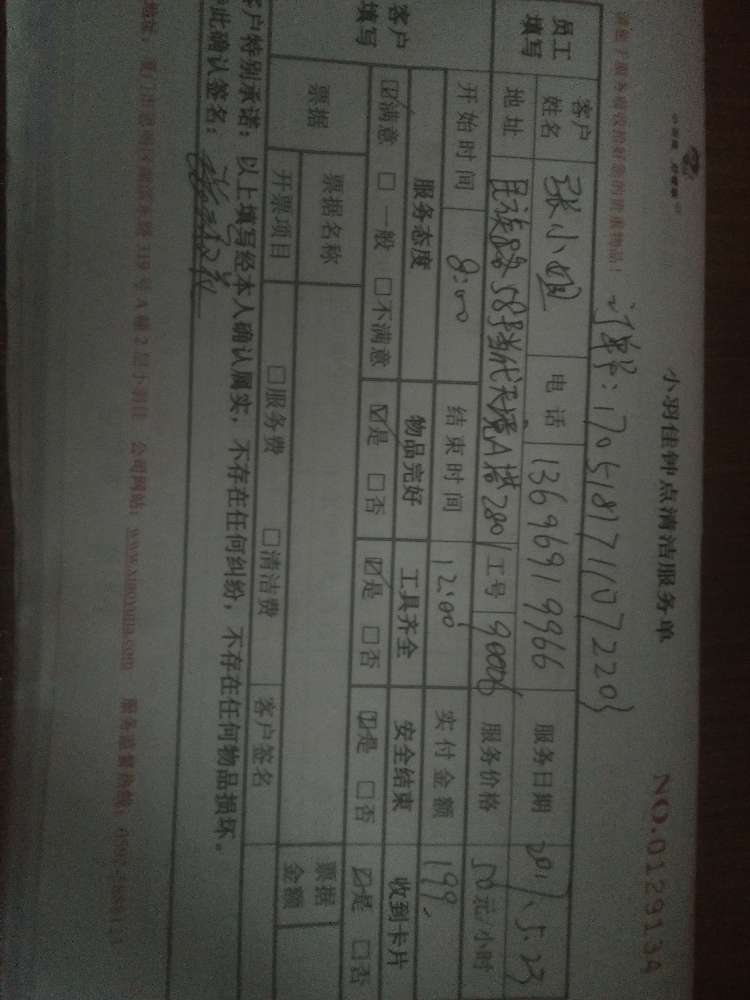 小羽佳钟点清洁服务单
NO.0129134
订单号:17051817110722203
员工填写 客户姓名 张小姐 电话 13696919966 服务日期 2017.5.23
地址 民族路58号当代天境A塔2801 工号 90006 服务价格 50元/小时
开始时间 8:00 结束时间 12:00 实付金额 199.
客户填写 服务态度 物品完好 工具齐全 安全结束 收到卡片
☑满意 □一般 □不满意 ☑是 □否 ☑是 □否 ☑是 □否 ☑是 □否
票据 票据名称 票据金额
开票项目 □服务费 □清洁费 客户签名
客户特别承诺:以上填写经本人确认属实,不存在任何纠纷,不存在任何物品损坏。
此确认签名:
319号A幢2层小羽佳 公司网站:www.xiaoyujia.com 服务监督热线: